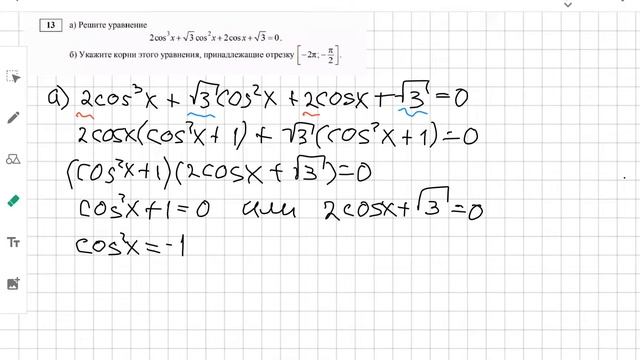 13 а) Решите уравнение
2cos³x + √3 cos²x + 2cosx + √3 = 0.
б) Укажите корни этого уравнения, принадлежащие отрезку [−2π; −π/2].
а) 2cos³x + √3 cos²x + 2cosx + √3 = 0
2cosx(cos²x + 1) + √3(cos²x + 1) = 0
(cos²x + 1)(2cosx + √3) = 0
cos²x + 1 = 0 или 2cosx + √3 = 0
cos²x = −1
Tт